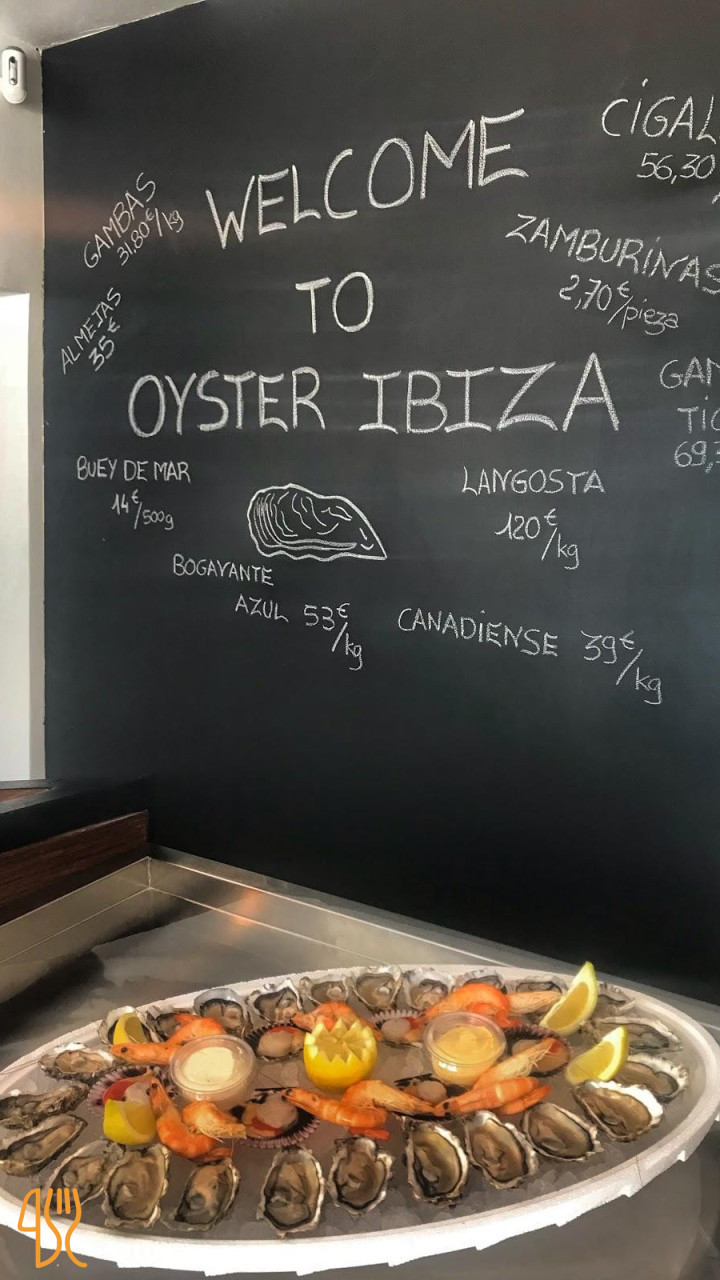 WELCOME
TO
OYSTER IBIZA
GAMBAS
31,80€/kg
ALMEJAS
35€
BUEY DE MAR
14€/500g
BOGAVANTE
AZUL 53€/kg
CANADIENSE 39€/kg
LANGOSTA
120€/kg
CIGAL
56,30
ZAMBURINAS
2,70€/pieza
GAM
TIG
69,